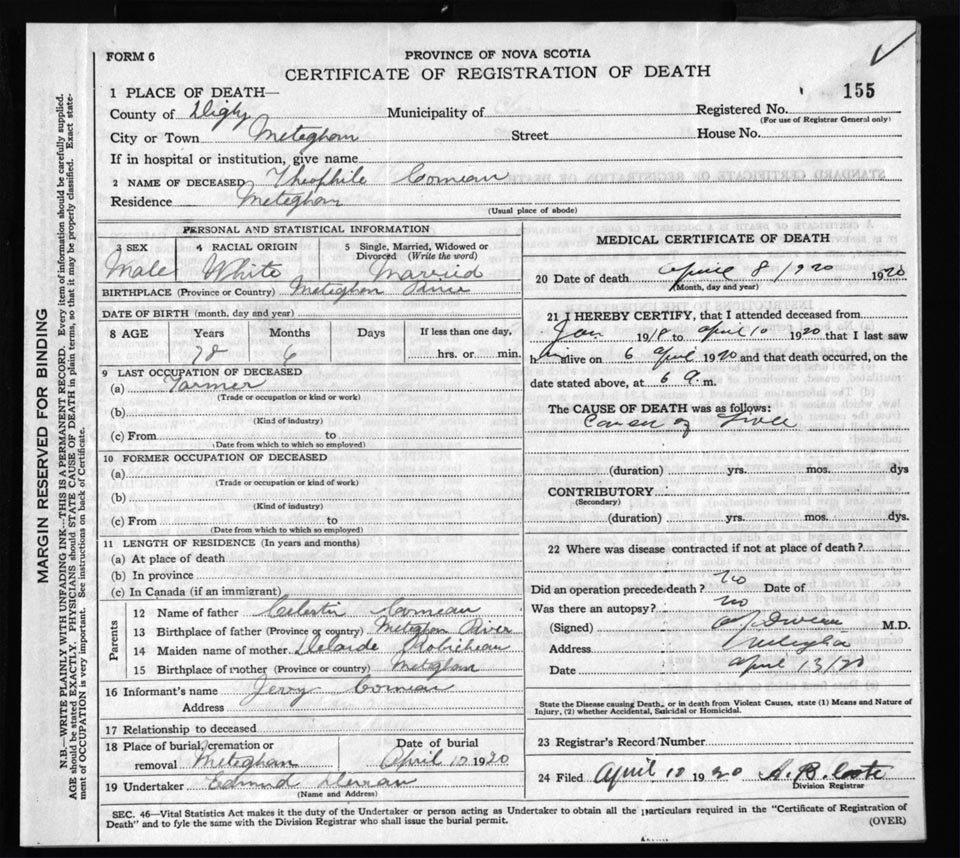 FORM 6
PROVINCE OF NOVA SCOTIA
CERTIFICATE OF REGISTRATION OF DEATH
155
1 PLACE OF DEATH—
County of Digby Municipality of Registered No.
(For use of Registrar General only)
City or Town Meteghan Street House No.
If in hospital or institution, give name
2 NAME OF DECEASED Theophile Comeau
Residence Meteghan
(Usual place of abode)
PERSONAL AND STATISTICAL INFORMATION
3 SEX 4 RACIAL ORIGIN 5 Single, Married, Widowed or Divorced (Write the word)
Male White Married
BIRTHPLACE (Province or Country) Meteghan River
DATE OF BIRTH (month, day and year)
8 AGE Years Months Days If less than one day,
6 hrs. or min.
9 LAST OCCUPATION OF DECEASED
(a) Farmer
(Trade or occupation or kind or work)
(b)
(Kind of industry)
(c) From to
(Date from which to which so employed)
10 FORMER OCCUPATION OF DECEASED
(a)
(Trade or occupation or kind of work)
(b)
(Kind of industry)
(c) From to
(Date from which to which so employed)
11 LENGTH OF RESIDENCE (In years and months)
(a) At place of death
(b) In province
(c) In Canada (if an immigrant)
Parents
12 Name of father Celestin Comeau
13 Birthplace of father (Province or country) Meteghan River
14 Maiden name of mother Robicheau
15 Birthplace of mother (Province or country) Meteghan
16 Informant's name Jerry Comeau
Address
17 Relationship to deceased
18 Place of burial, cremation or removal Meteghan
Date of burial April 10 1920
19 Undertaker Edmund
(Name and Address)
MEDICAL CERTIFICATE OF DEATH
20 Date of death April 8 / 1920 1920
(Month, day and year)
21 I HEREBY CERTIFY, that I attended deceased from
Jan 1918 to April 10 1920 that I last saw
him alive on 6 April 1920 and that death occurred, on the
date stated above, at 6 a.m.
The CAUSE OF DEATH was as follows:
Cancer of
(duration) yrs. mos. dys
CONTRIBUTORY
(Secondary)
(duration) yrs. mos. dys.
22 Where was disease contracted if not at place of death?
Did an operation precede death? no Date of
Was there an autopsy? no
(Signed) M.D.
Address Meteghan
Date April 13/20
State the Disease causing Death, or in death from Violent Causes, state (1) Means and Nature of
Injury, (2) whether Accidental, Suicidal or Homicidal.
23 Registrar's Record Number
24 Filed April 10 1920 A. B.
Division Registrar
SEC. 46—Vital Statistics Act makes it the duty of the Undertaker or person acting as Undertaker to obtain all the particulars required in the "Certificate of Registration of
Death" and to fyle the same with the Division Registrar who shall issue the burial permit. (OVER)
MARGIN RESERVED FOR BINDING
N.B.—WRITE PLAINLY WITH UNFADING INK—THIS IS A PERMANENT RECORD. Every item of information should be carefully supplied.
AGE should be stated EXACTLY. PHYSICIANS should STATE CAUSE OF DEATH in plain terms, so that it may be properly classified. Exact state-
ment of OCCUPATION is very important. See instructions on back of Certificate.